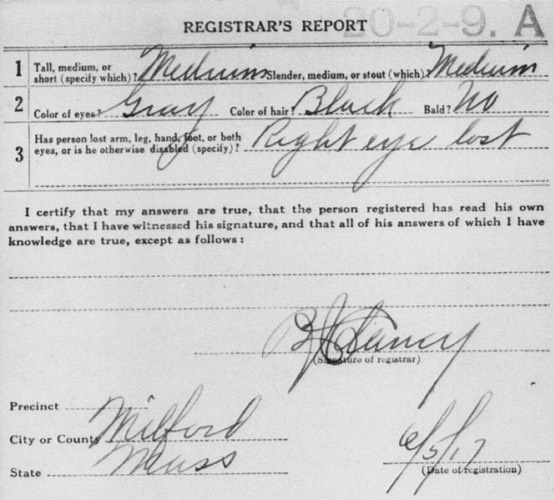 REGISTRAR'S REPORT 20-2-9. A
1 Tall, medium, or short (specify which)? Medium Slender, medium, or stout (which)? Medium
2 Color of eyes? Gray Color of hair? Black Bald? No
3 Has person lost arm, leg, hand, foot, or both eyes, or is he otherwise disabled (specify)? Right eye lost
I certify that my answers are true, that the person registered has read his own
answers, that I have witnessed his signature, and that all of his answers of which I have
knowledge are true, except as follows:
(Signature of registrar)
Precinct
City or County Milford
State Mass
6/5/17
(Date of registration)